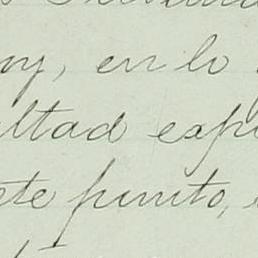 oy, en lo
ultad exp
ste punto,